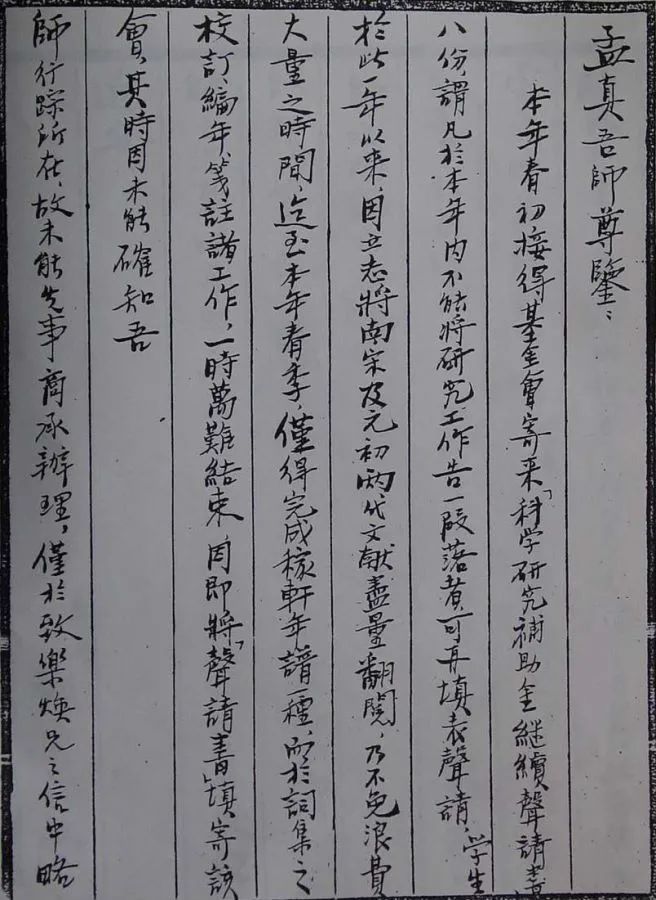 孟真吾師尊鑒：
本年春初接得基金會寄來「科学研究補助金継續聲請書
八份，謂凡於本年内不能將研究工作告一段落者，可再填表聲請，学生
於此一年以來，因立志將南宋及元初兩代文献盡量翻閲，乃不免浪費
大量之時間，迄至本年春季，僅得完成稼軒年譜一種，而於詞集之
校訂，編年箋註諸工作，一時萬難結束，因即將「聲請書」填寄該
會，其時因未能確知吾
師行踪所在，故未能先事商承辦理，僅於致樂煥兄之信中略